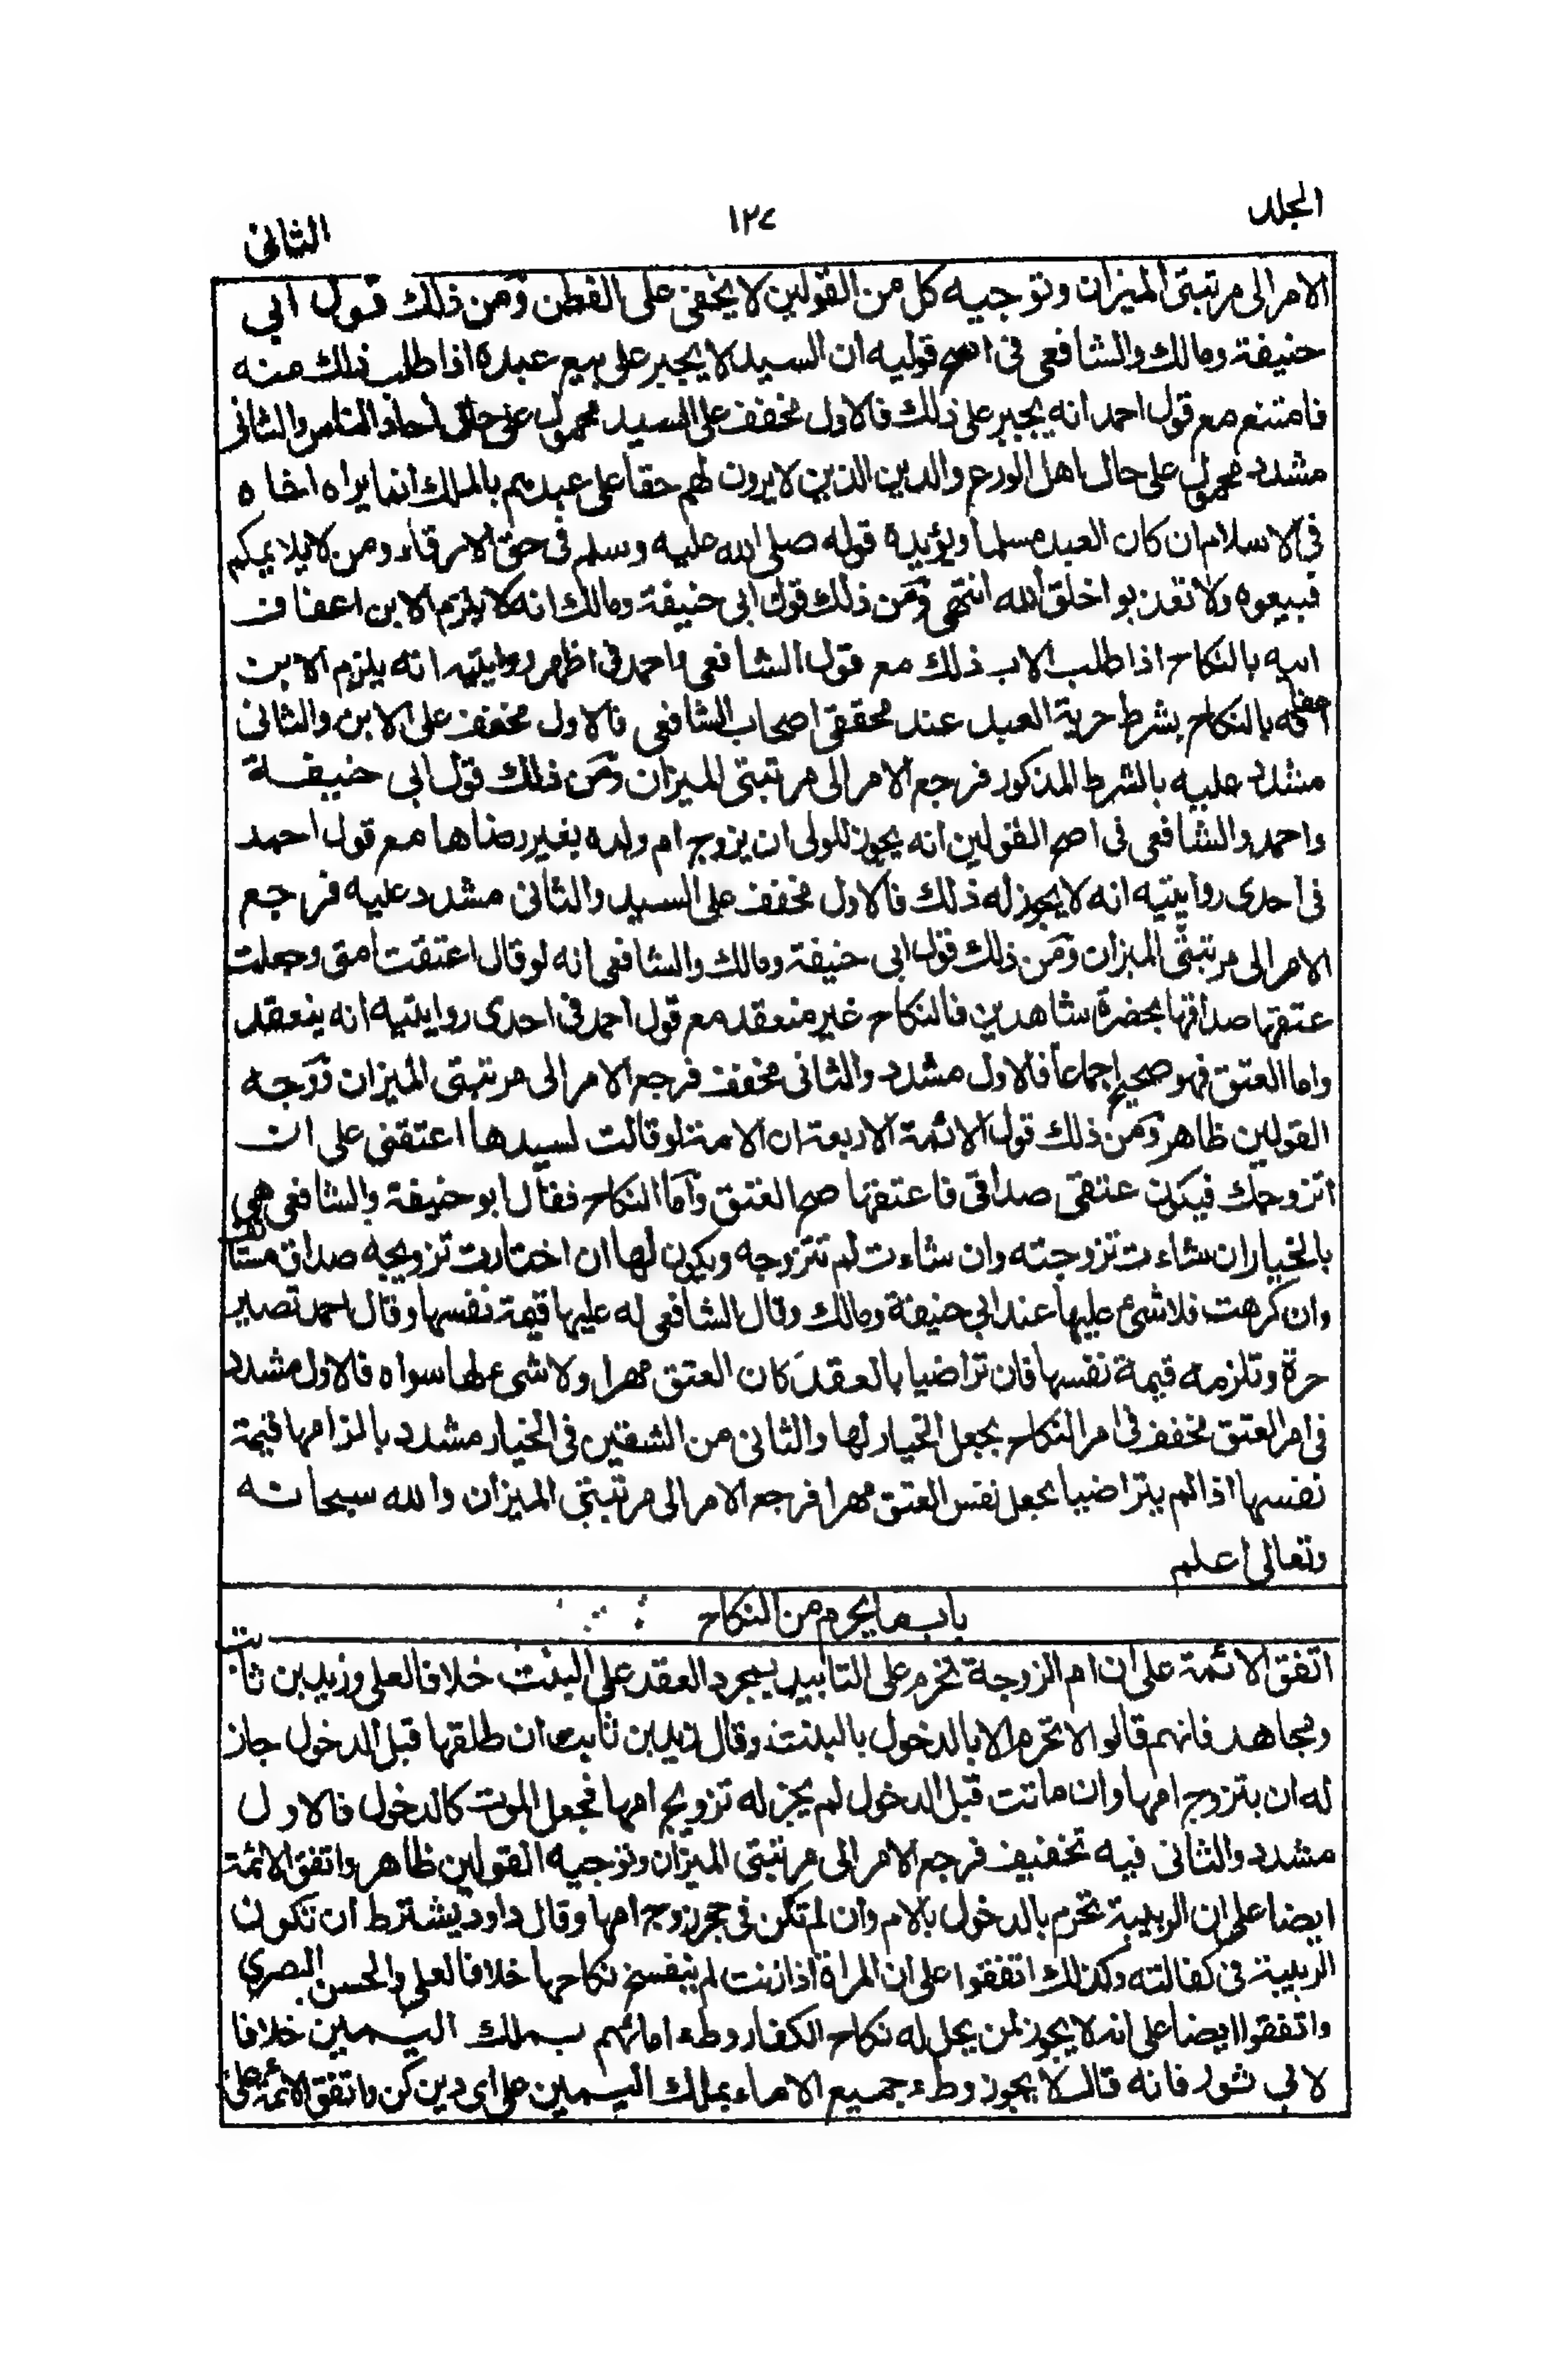 المجلد ١٢٧ الثانى
الامر الى مرتبتى الميزان وتوجيه كل من القولين لا يخفى على الفطن ومن ذلك قول ابي
حنيفة ومالك والشافعى فى اصح قوليه ان السيد لا يجبر على بيع عبده اذا طلب ذلك منه
فامتنع مع قول احمد انه يجبر على ذلك فالاول مخفف على السيد محمول على حال احاد الناس والثانى
مشدد محمول على حال اهل الورع والدين الذين لا يرون لهم حقا على عبدهم بالملك انما يراه اخاه
فى الاسلام ان كان العبد مسلما ويؤيده قوله صلى الله عليه وسلم فى حق الارقاء ومن لا يلايمكم
فبيعوه ولا تعذبوا خلق الله انتهى ومن ذلك قول ابى حنيفة ومالك انه لا يلزم الابن اعفاف
ابيه بالنكاح اذا طلب الاب ذلك مع قول الشافعى واحمد فى اظهر روايتيه انه يلزم الابن
اعفافه بالنكاح بشرط حرية العبد عند محققى اصحاب الشافعى فالاول مخفف على الابن والثانى
مشدد عليه بالشرط المذكور فرجع الامر الى مرتبتى الميزان ومن ذلك قول ابى حنيفة
واحمد والشافعى فى اصح القولين انه يجوز للولى ان يزوج ام ولده بغير رضاها مع قول احمد
فى احدى روايتيه انه لا يجوز له ذلك فالاول مخفف على السيد والثانى مشدد عليه فرجع
الامر الى مرتبتى الميزان ومن ذلك قول ابى حنيفة ومالك والشافعى انه لو قال اعتقت امتى وجعلت
عتقها صداقها بحضرة شاهدين فالنكاح غير منعقد مع قول احمد فى احدى روايتيه انه ينعقد
واما العتق فهو صحيح اجماعا فالاول مشدد والثانى مخفف فرجع الامر الى مرتبتى الميزان ووجه
القولين ظاهر ومن ذلك قول الائمة الاربعة ان الامة لو قالت لسيدها اعتقنى على ان
اتزوجك فيكون عتقى صداقى فاعتقها صح العتق واما النكاح فقال ابو حنيفة والشافعى هى
بالخيار ان شاءت تزوجته وان شاءت لم تتزوجه ويكون لها ان اختارت تزويجه صداق مستانف
وان كرهت فلا شئ عليها عند ابي حنيفة ومالك وقال الشافعى له عليها قيمة نفسها وقال احمد تصير
حرة وتلزمه قيمة نفسها فان تراضيا بالعقد كان العتق مهرا ولا شئ لها سواه فالاول مشدد
فى امر العتق مخفف فى امر النكاح بجعل الخيار لها والثانى من الشقين فى الخيار مشدد بالزامها قيمة
نفسها اذا لم يتراضيا بجعل نفس العتق مهرا فرجع الامر الى مرتبتى الميزان والله سبحانه
وتعالى اعلم
باب ما يحرم من النكاح
اتفق الائمة على ان ام الزوجة تحرم على التابيد بمجرد العقد على البنت خلافا لعلى وزيد بن ثابت
ومجاهد فانهم قالوا لا تحرم الا بالدخول بالبنت وقال زيد بن ثابت ان طلقها قبل الدخول جاز
له ان يتزوج امها وان ماتت قبل الدخول لم يجز له تزويج امها فجعل الموت كالدخول فالاول
مشدد والثانى فيه تخفيف فرجع الامر الى مرتبتى الميزان وتوجيه القولين ظاهر واتفق الائمة
ايضا على ان الربيبة تحرم بالدخول بالام وان لم تكن فى حجر زوج امها وقال داود يشترط ان تكون
الربيبة فى كفالته وكذلك اتفقوا على ان المراة اذا زنت لم ينفسخ نكاحها خلافا لعلى والحسن البصري
واتفقوا ايضا على انه لا يجوز لمن يحل له نكاح الكفار وطء امائهم بملك اليمين خلافا
لابي ثور فانه قال لا يجوز وطء جميع الاماء بملك اليمين على اى دين كن واتفق الائمة على